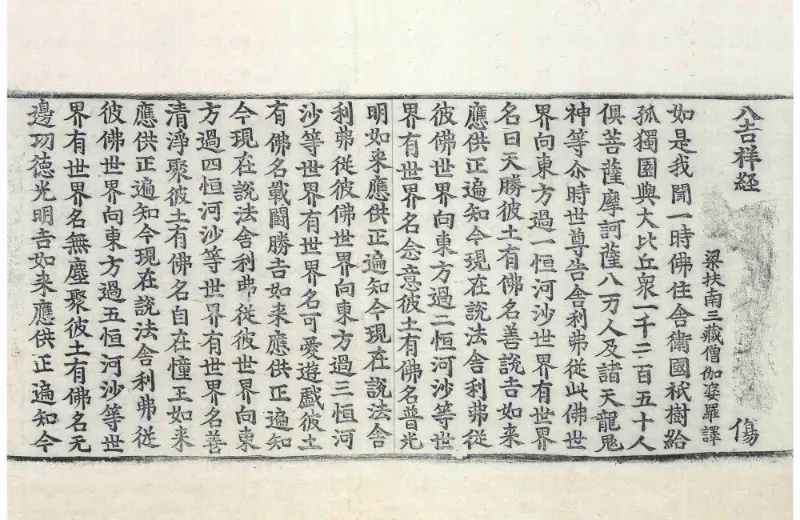 八吉祥経 傷
梁扶南三藏僧伽婆羅譯
如是我聞一時佛住舎衛國祇樹給
孤獨園與大比丘衆一千二百五十人
俱菩薩摩訶薩八万人及諸天龍鬼
神等尒時世尊告舎利弗從此佛世
界向東方過一恒河沙世界有世界
名曰天勝彼土有佛名善說吉如来
應供正遍知今現在說法舎利弗從
彼佛世界向東方過二恒河沙等世
界有世界名念意彼土有佛名普光
明如来應供正遍知今現在說法舎
利弗從彼佛世界向東方過三恒河
沙等世界有世界名可愛遊戲彼土
有佛名戰鬪勝吉如来應供正遍知
今現在說法舎利弗從彼世界向東
方過四恒河沙等世界有世界名善
清淨聚彼土有佛名自在憧王如来
應供正遍知今現在說法舎利弗從
彼佛世界向東方過五恒河沙等世
界有世界名無塵聚彼土有佛名无
邊功德光明吉如来應供正遍知今